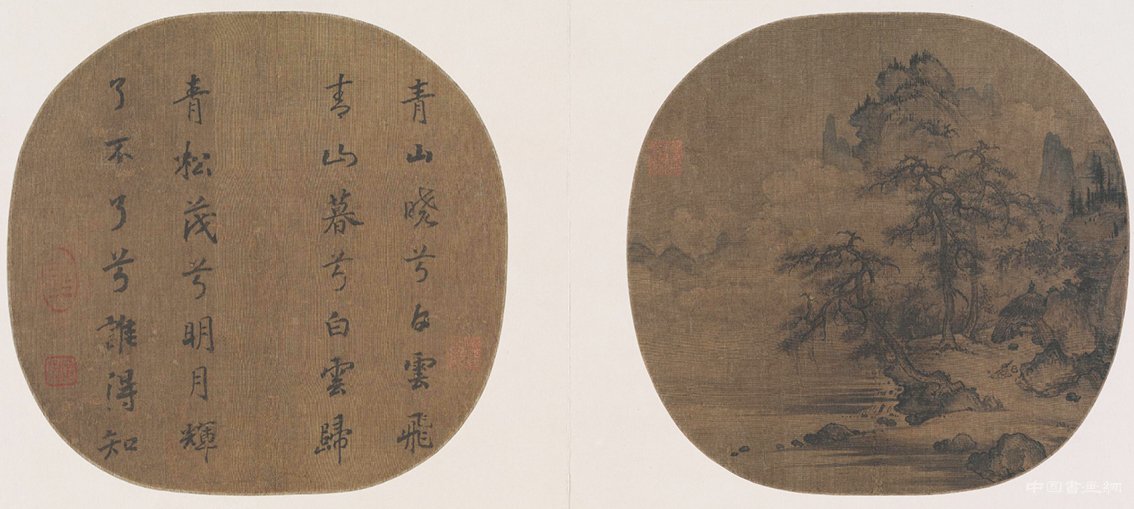 青山曉兮白雲飛
青山暮兮白雲歸
青松茂兮明月輝
了不了兮誰得知
中国書画網